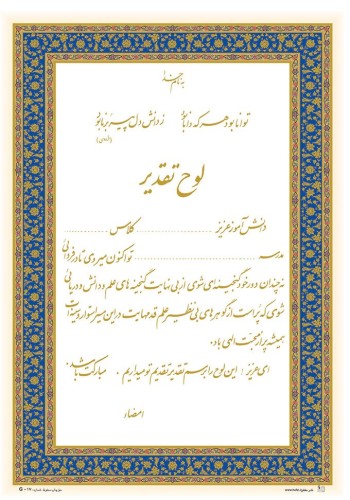 به نام خدا
توانا بود هر که دانا بود ز دانش دل پیر برنا بود
(فردوسی)
لوح تقدیر
دانش آموز عزیز ........ کلاس ........
مدرسه ........ تو اکنون می‌روی تا در فردائی
نه چندان دور خود گنجینه‌ای شوی از بی نهایت گنجینه های علم و دانش و دریائی
شوی که پر است از گوهرهای بی نظیر علم قدمهایت در این مسیر استوار و سینه‌ات
همیشه پر از محبت الهی باد.
ای عزیز : این لوح را برسم تقدیر تقدیم تو میداریم . مبارکت باشد.
امضاء